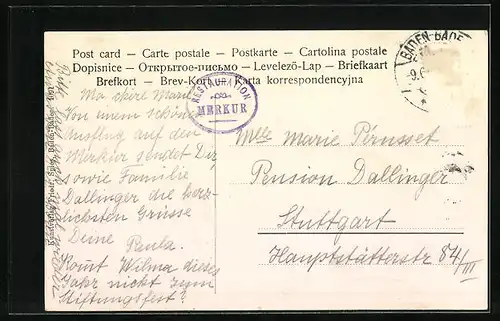 Post card – Carte postale – Postkarte – Cartolina postale
Dopisnice – Открытое-письмо – Levelező-Lap – Briefkaart
Brefkort – Brev-Kort – Karta korrespondencyjna
BADEN-BADE
RESTAURATION
MERKUR
Ma chère Marie
Von einem schönen
Ausflug auf den
Merkur sendet Dir
sowie Familie
Dallinger die herz-
lichsten Grüsse
Deine
Paula.
Kommt Wilma dieses
Jahr nicht zum
Stiftungsfest?
Mlle Marie Perusset
Pension Dallinger
Stuttgart
Hauptstätterstr 84/III